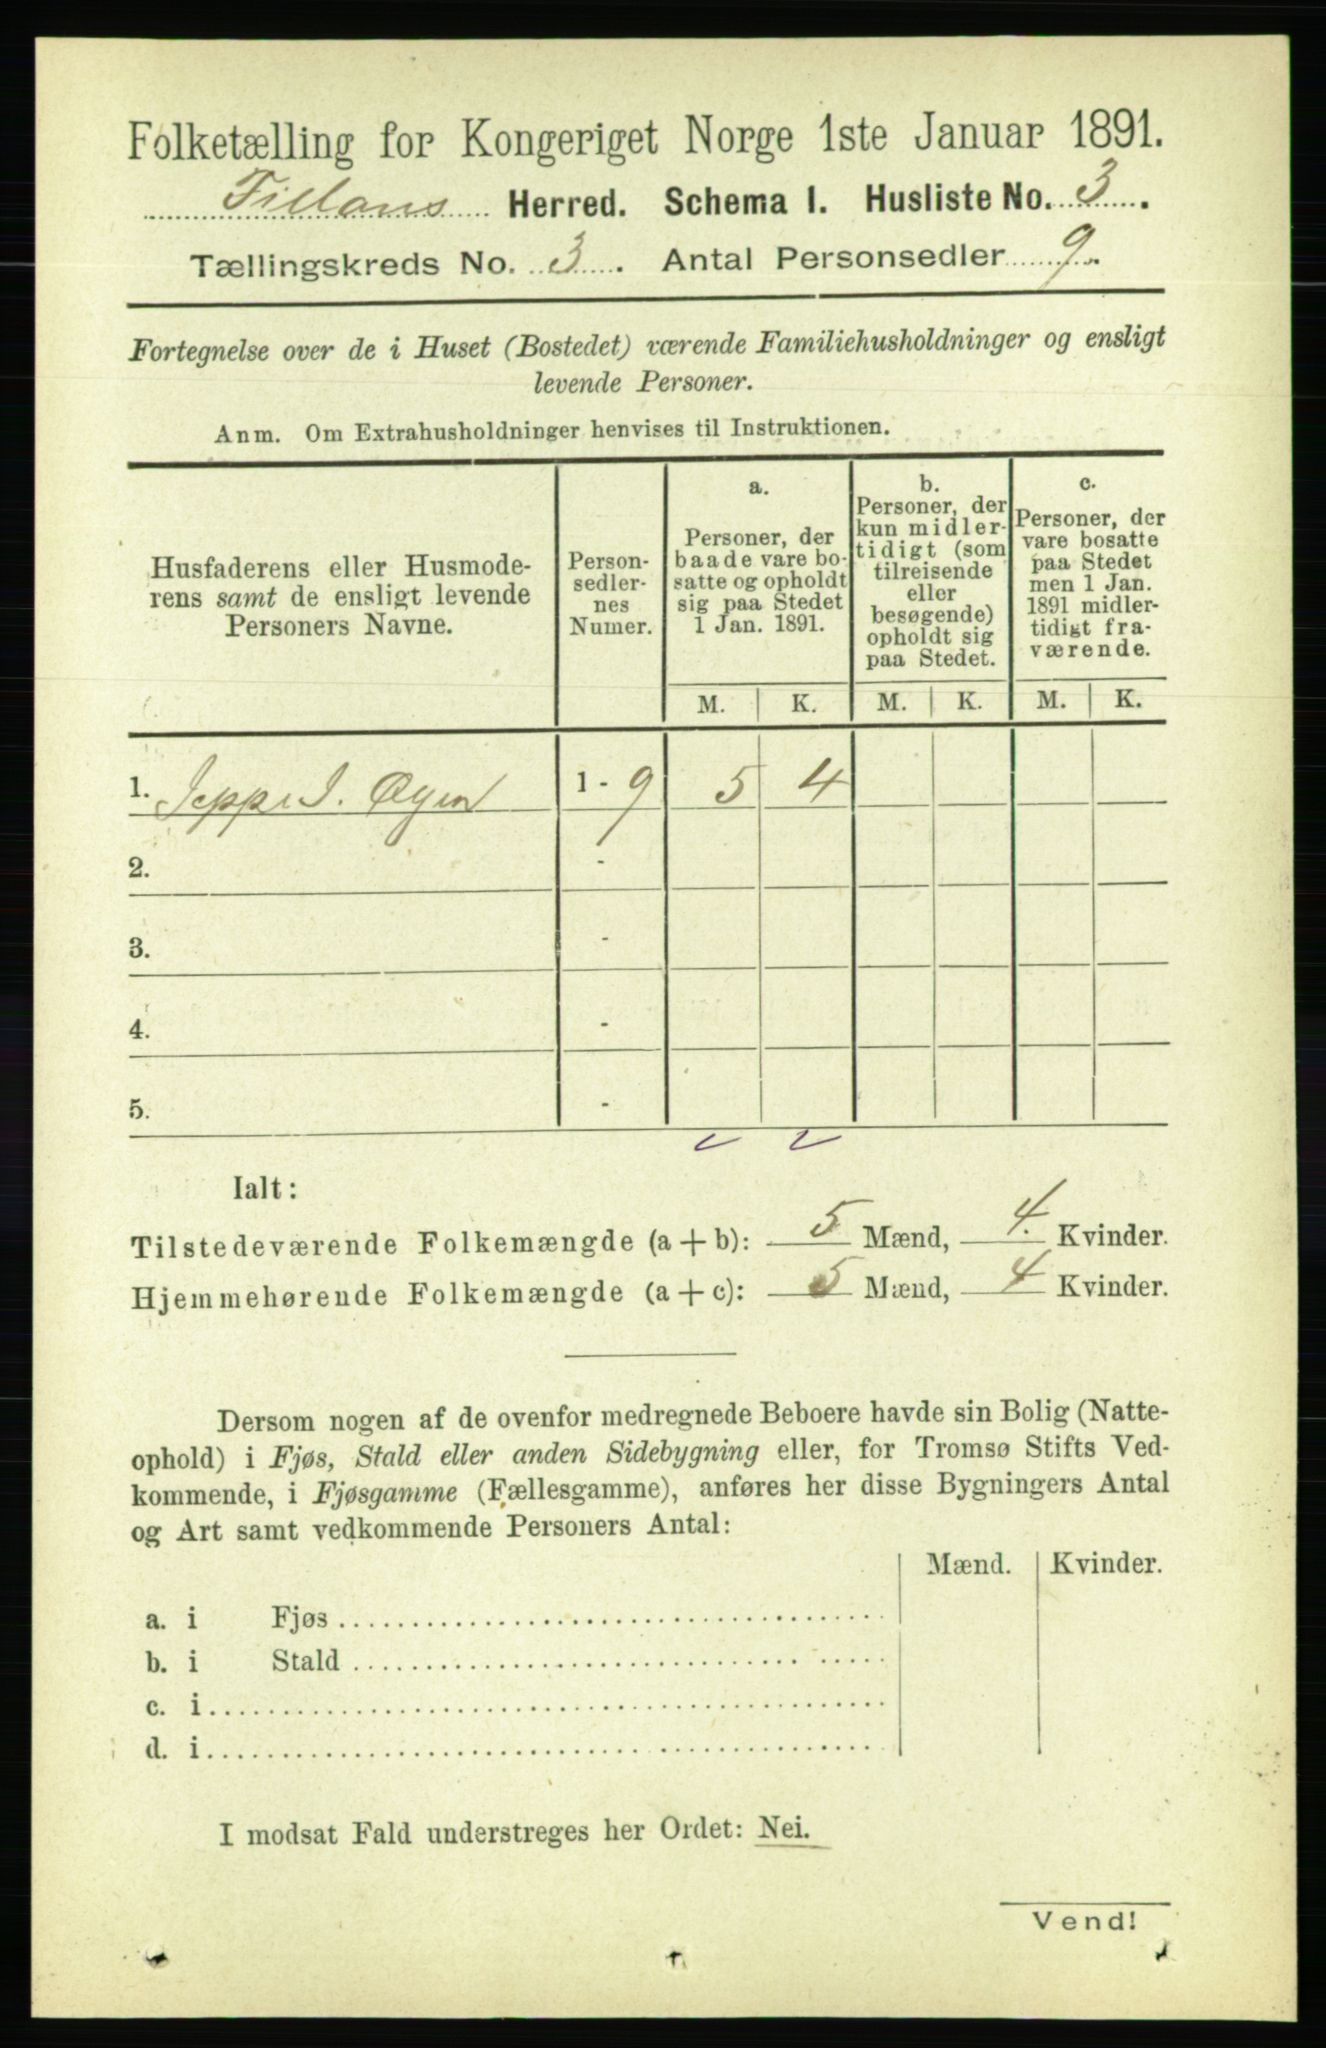 Folketælling for Kongeriget Norge 1ste Januar 1891.
Fillans Herred. Schema I. Husliste No. 3.
Tællingskreds No. 3. Antal Personsedler 9.
Fortegnelse over de i Huset (Bostedet) værende Familiehusholdninger og ensligt
levende Personer.
Anm. Om Extrahusholdninger henvises til Instruktionen.
Husfaderens eller Husmode-
rens samt de ensligt levende
Personers Navne.
Person-
sedler-
nes
Numer.
a.
Personer, der
baade vare bo-
satte og opholdt
sig paa Stedet
1 Jan. 1891.
b.
Personer, der
kun midler-
tidigt (som
tilreisende
eller
besøgende)
opholdt sig
paa Stedet.
c.
Personer, der
vare bosatte
paa Stedet
men 1 Jan.
1891 midler-
tidigt fra-
værende.
M. K. M. K. M. K.
1. Jeppe J. Øyen 1 - 9 5 4
2. -
3. -
4. -
5. -
Ialt:
Tilstedeværende Folkemængde (a + b): 5 Mænd, 4. Kvinder.
Hjemmehørende Folkemængde (a + c): 5 Mænd, 4 Kvinder.
Dersom nogen af de ovenfor medregnede Beboere havde sin Bolig (Natte-
ophold) i Fjøs, Stald eller anden Sidebygning eller, for Tromsø Stifts Ved-
kommende, i Fjøsgamme (Fællesgamme), anføres her disse Bygningers Antal
og Art samt vedkommende Personers Antal:
Mænd. Kvinder.
a. i Fjøs
b. i Stald
c. i
d. i
I modsat Fald understreges her Ordet: Nei.
Vend!